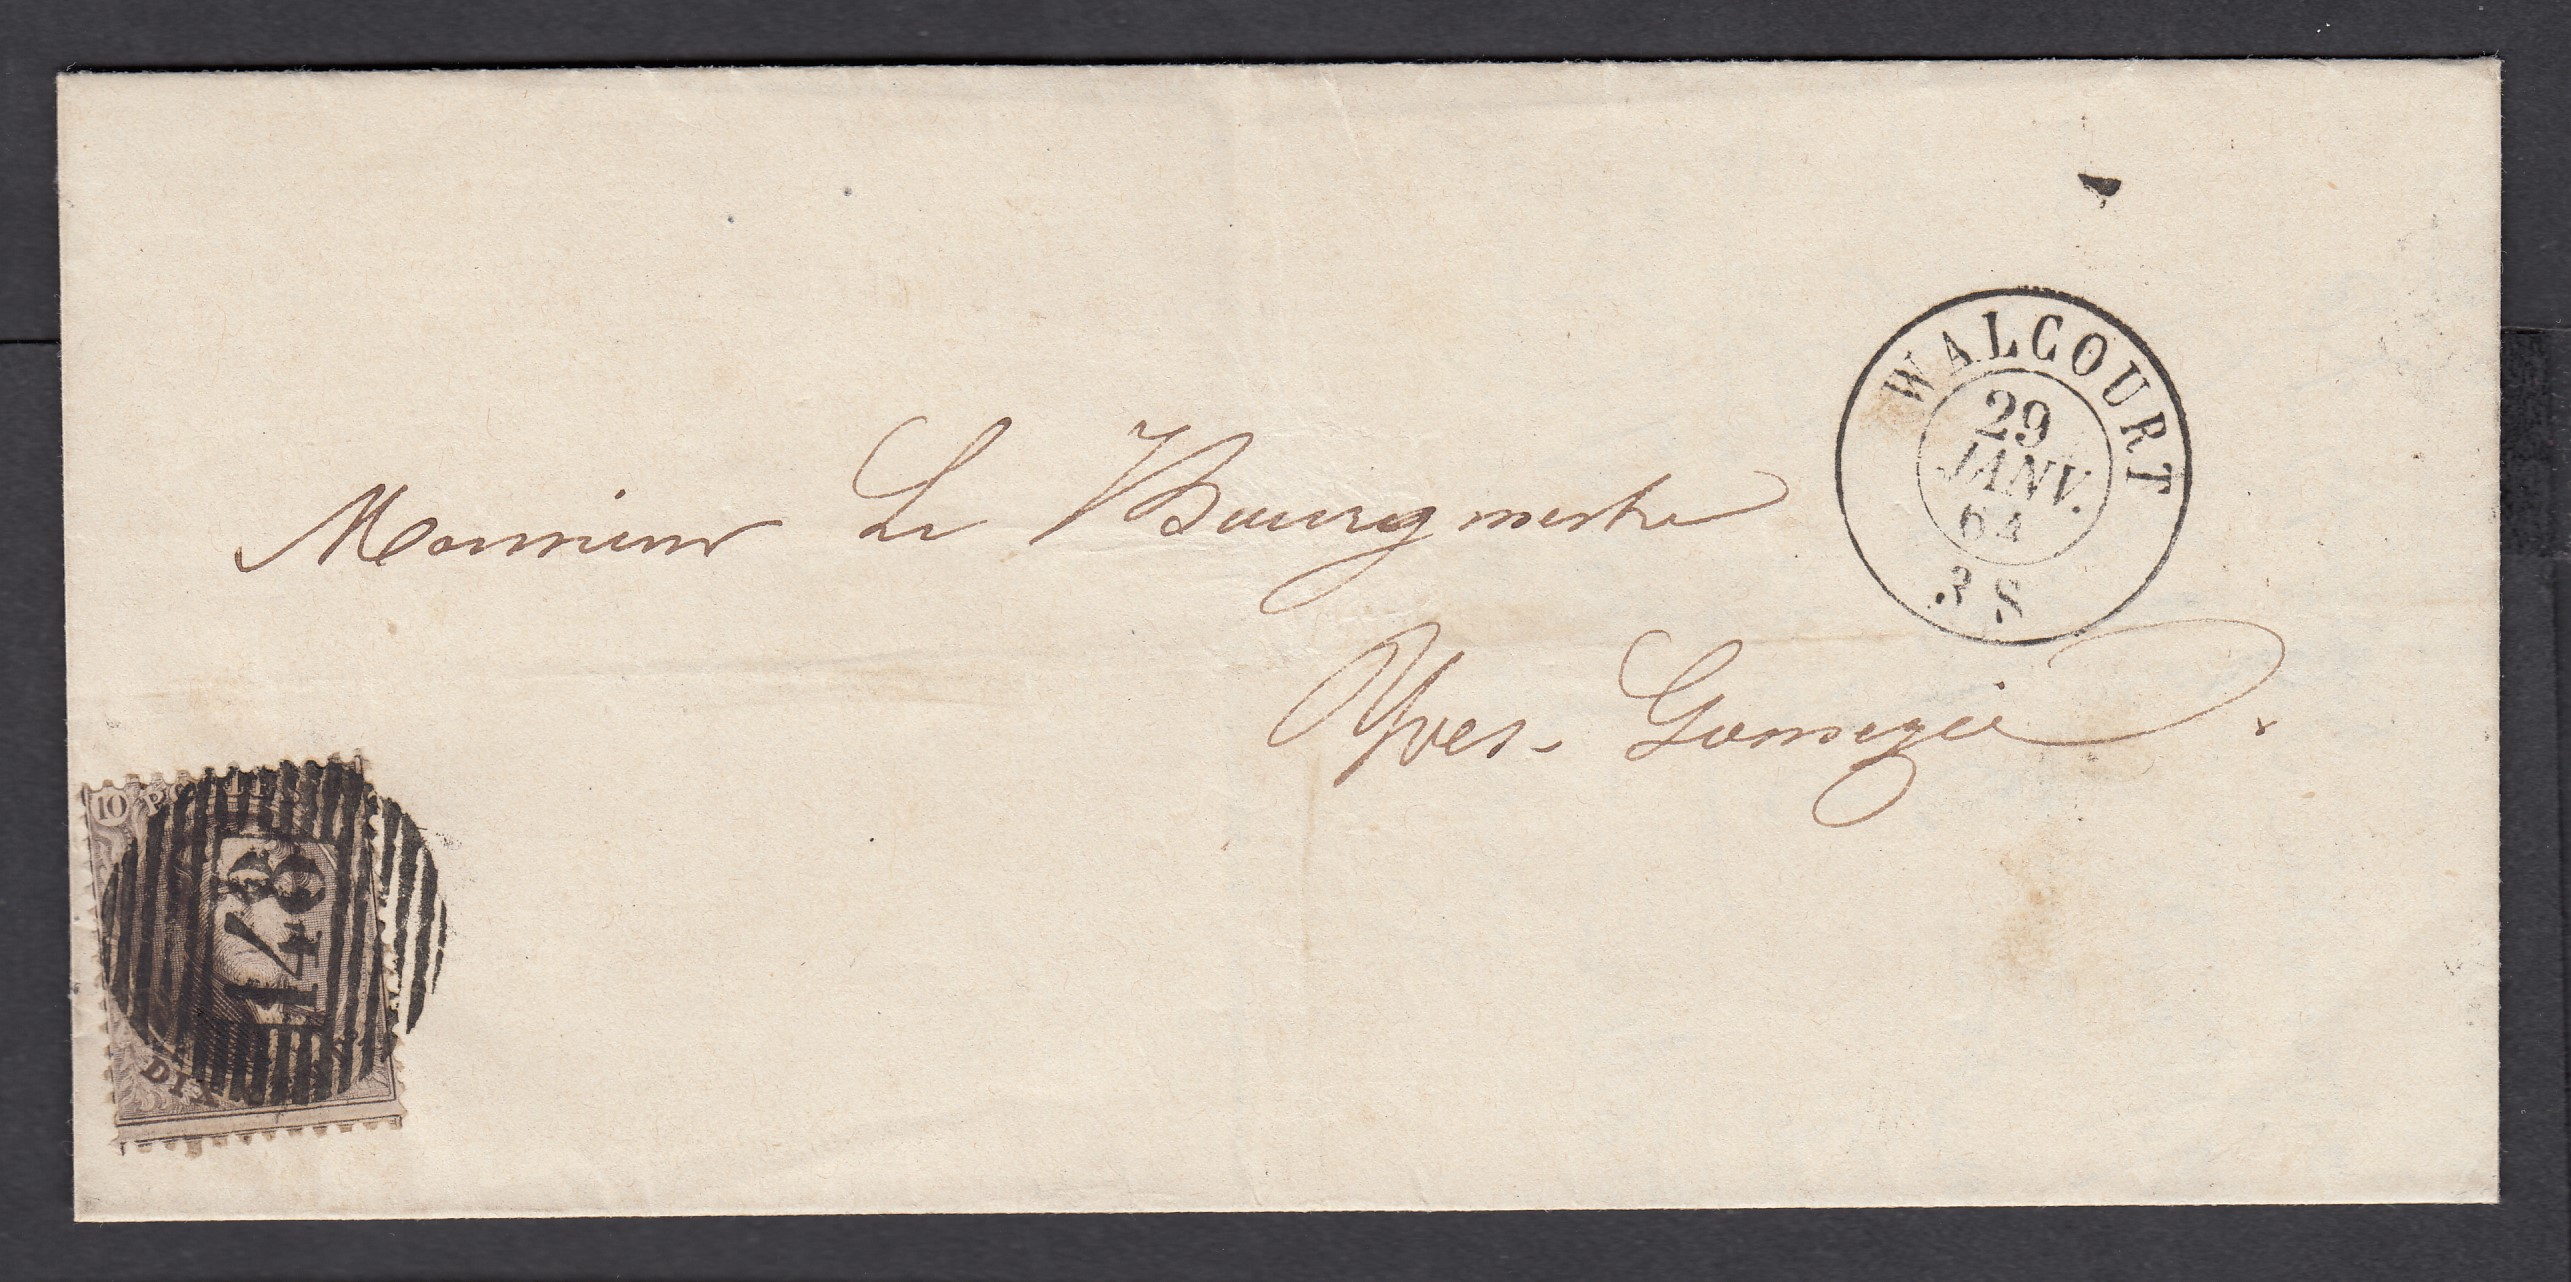 WALCOURT
29
JANV.
64
3 S
Monsieur Le Bourgmestre
Yves-Gomezée.
10 POSTES
148
DIX